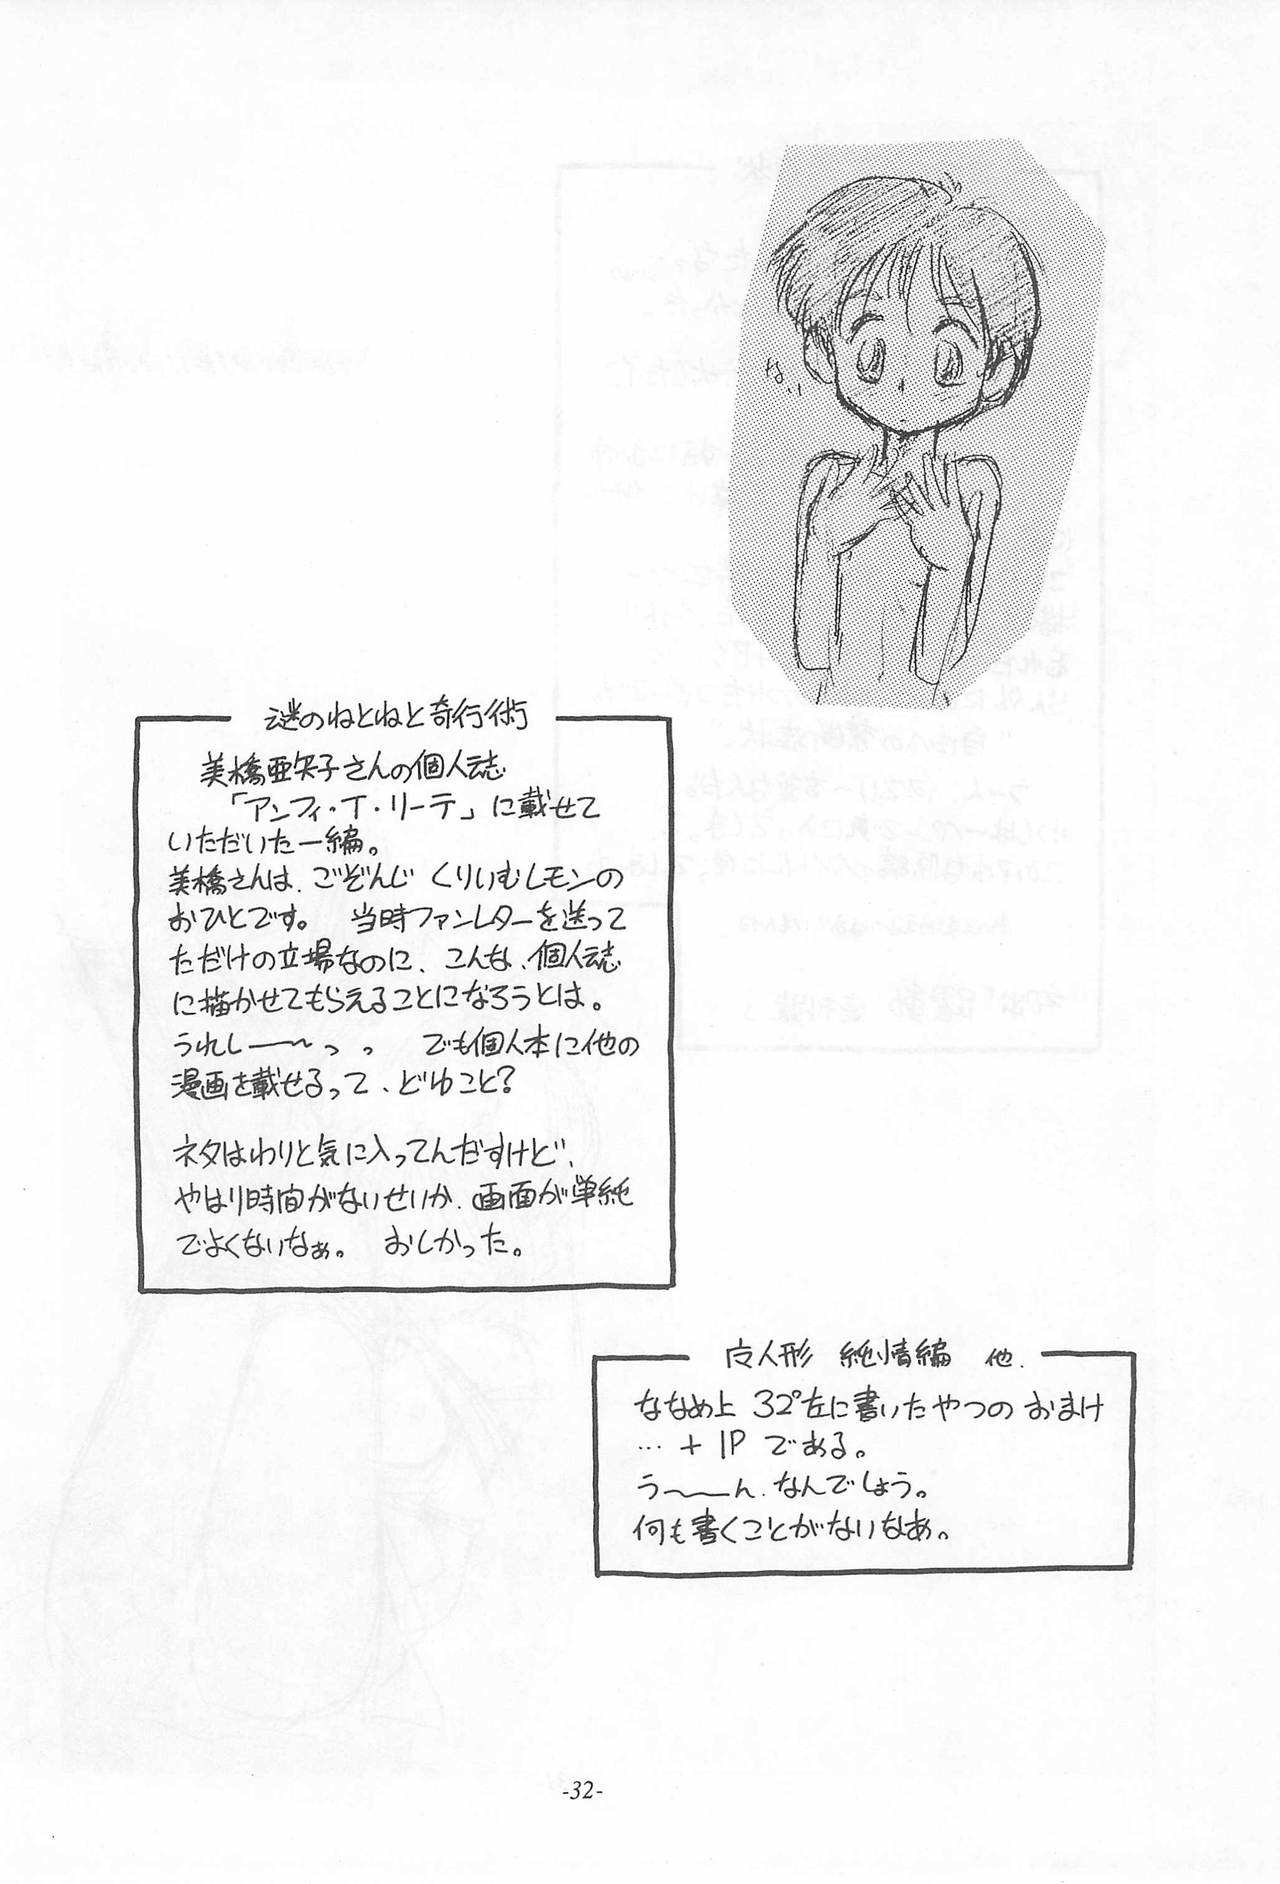 ない
謎のねとねと奇行術
美橋亜矢子さんの個人誌
「アンフィ・T・リーテ」に載せて
いただいた一編。
美橋さんは、ごぞんじ くりいむレモンの
おひとです。 当時ファンレターを送って
ただけの立場なのに、こんな、個人誌
に描かせてもらえることになろうとは。
うれしー〜っっ でも個人本に他の
漫画を載せるって、どゆこと?
ネタはわりと気に入ってんだすけど、
やはり時間がないせいか、画面が単純
でよくないなぁ。 おしかった。
皮人形 純情編 他.
ななめ上 32°左に書いたやつの おまけ
… + 1P である。
う〜〜ん、なんでしょう。
何も書くことがないなあ。
-32-